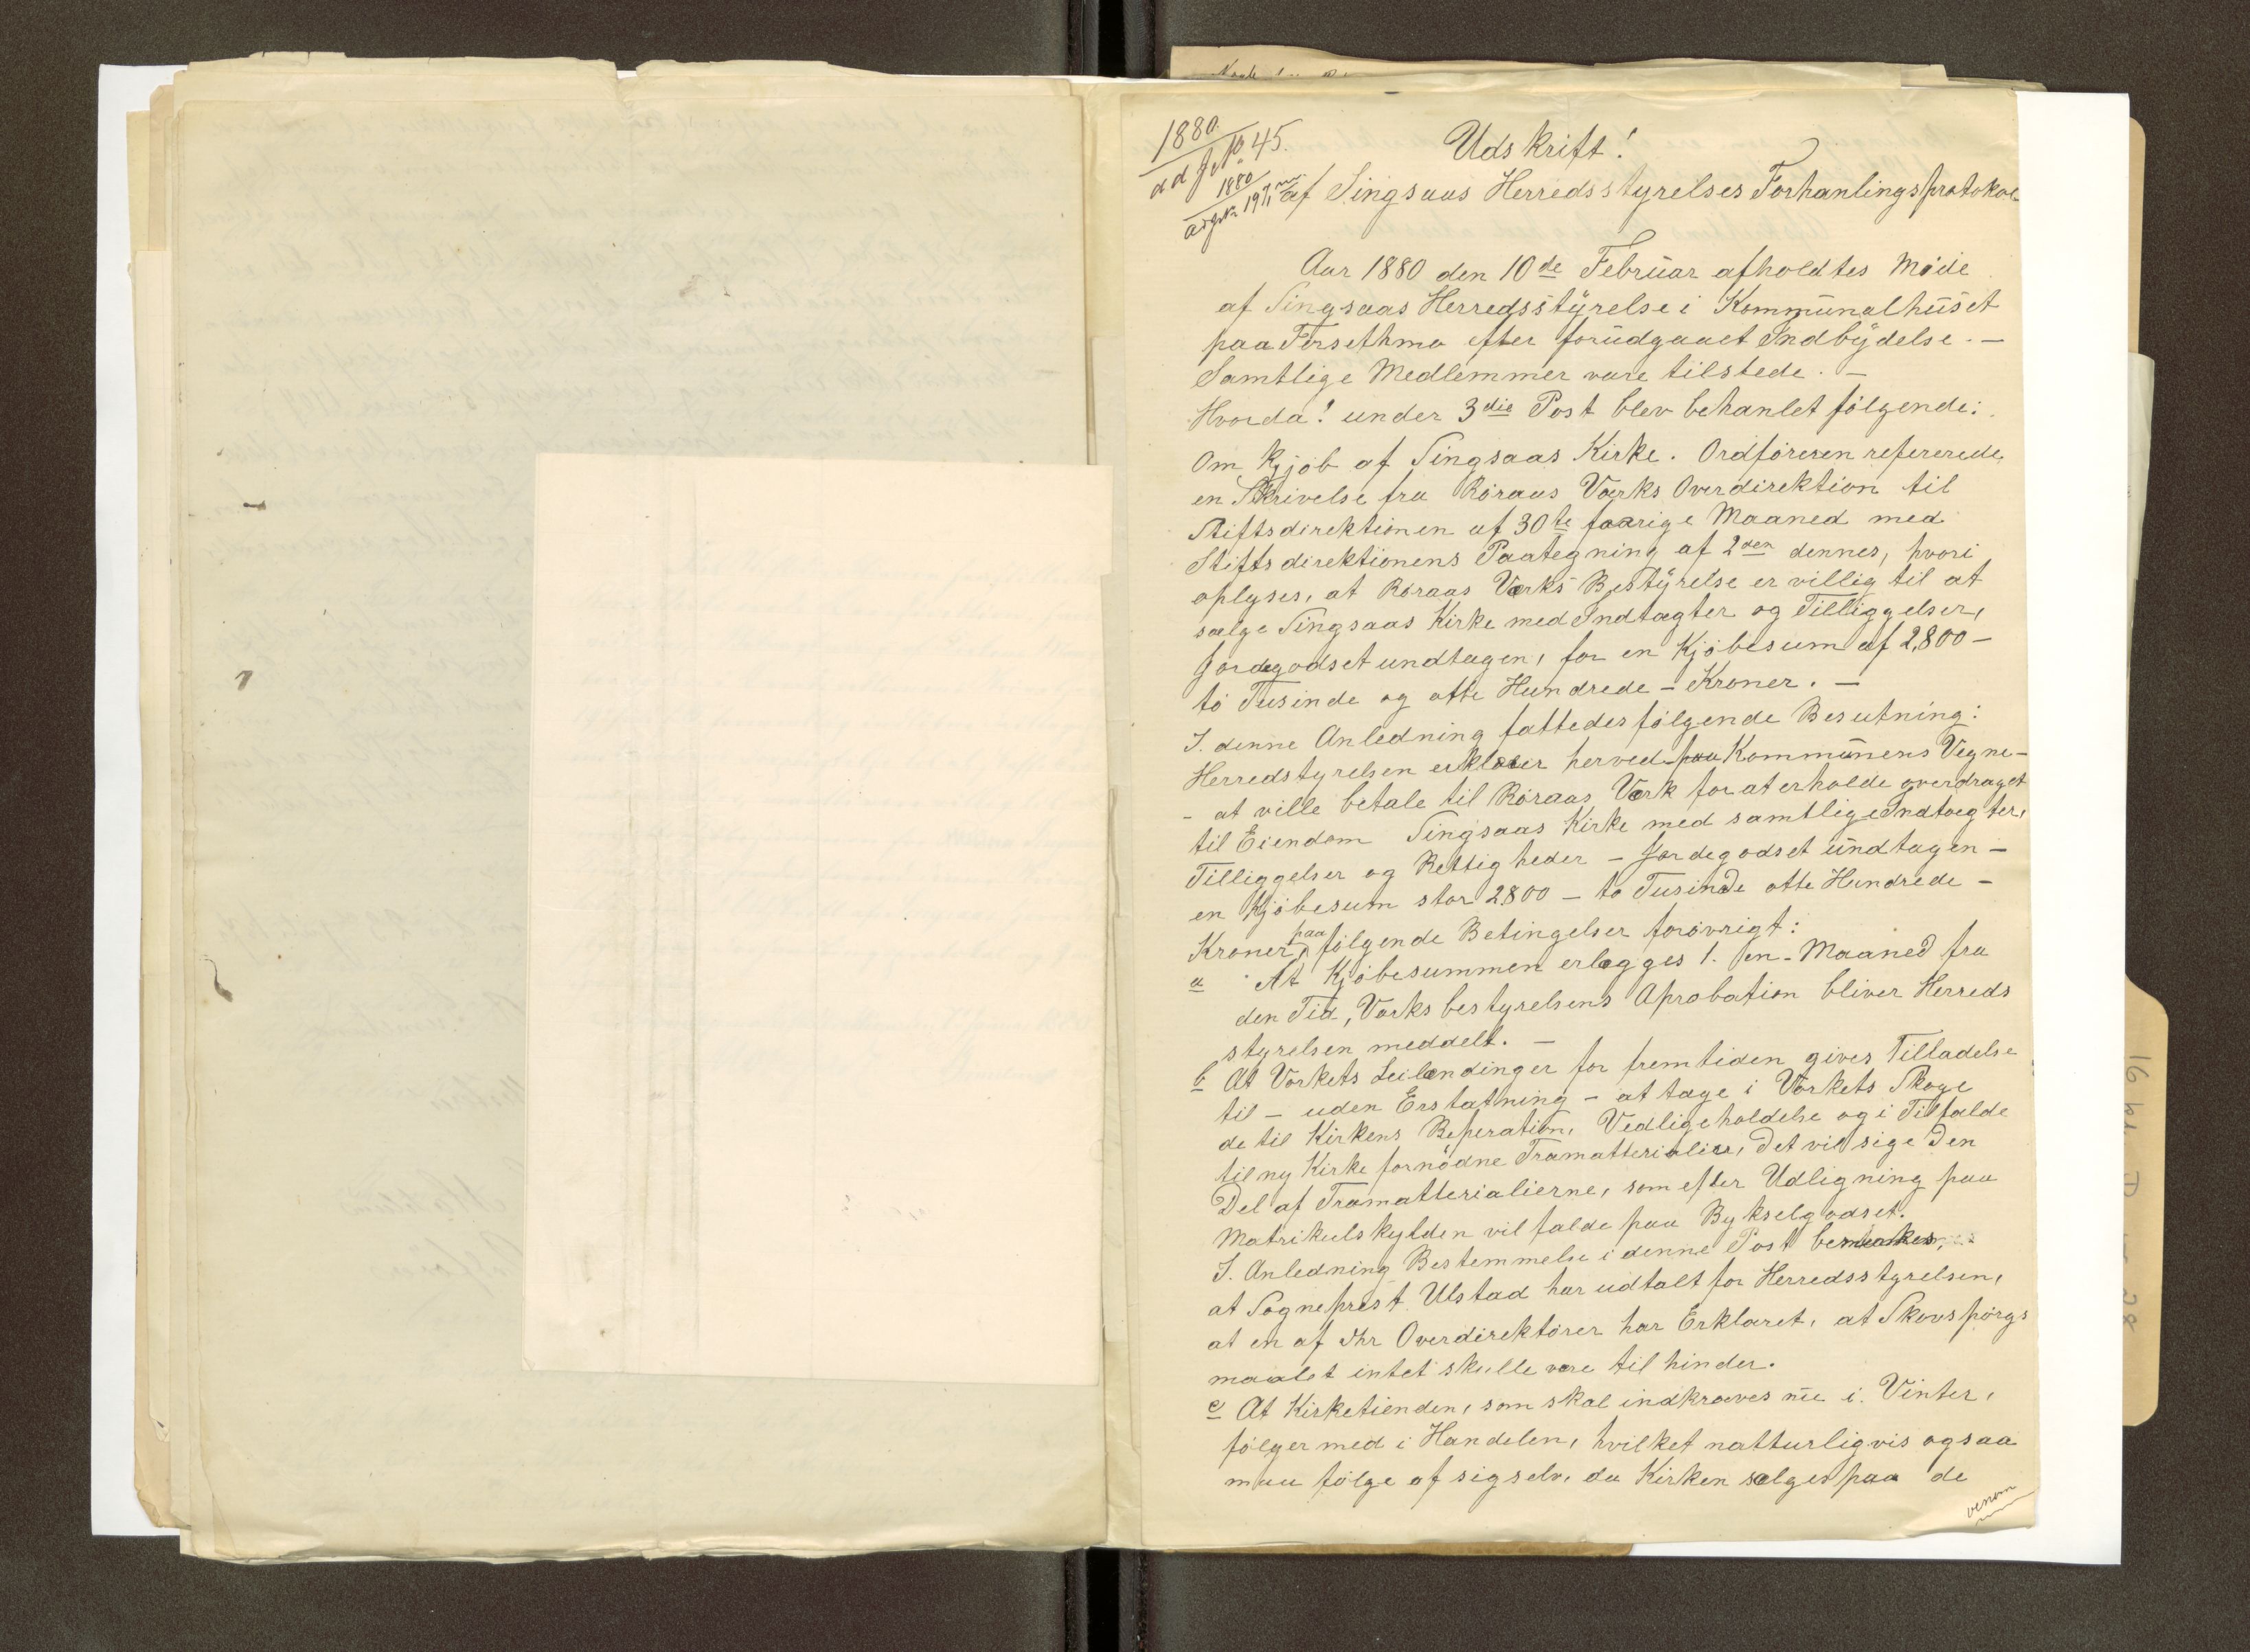 1880.
ad J. No 45.
1880
Udskrift!
af Singsaas Herredsstyrelses Forhanlingsprotokol
Aar 1880 den 10de Februar afholdtes Møde
af Singsaas Herredsstyrelse i Kommunalhuset
paa Forsethmo efter forudgaaet Indbydelse. —
Samtlige Medlemmer vare tilstede. —
Hvorda! under 3die Post blev behanlet følgende:
Om Kjøb af Singsaas Kirke. Ordføreren refererede
en Skrivelse fra Røraas Værks Overdirektion til
Stiftsdirektionen af 30te forrige Maaned med
Stiftsdirektionens Paategning af 2den dennes, hvori
oplyses, at Røraas Værks Bestyrelse er villig til at
sælge Singsaas Kirke med Indtægter og Tilliggelser,
Jordegodset undtagen, for en Kjøbesum af 2,800 —
to Tusinde og otte Hundrede — Kroner. —
I. denne Anledning fattedes følgende Besutning:
Herredstyrelsen erklærer herved paa Kommunens Vegne —
- at ville betale til Røraas Værk for at erholde overdraget
til Eiendom Singsaas Kirke med samtlige Indtægter,
Tilliggelser og Rettigheder — Jordegodset undtagen —
en Kjøbesum stor 2800 — to Tusinde otte Hundrede —
Kroner, paa følgende Betingelser forøvrigt:
a At Kjøbesummen erlægges 1. en - Maaned fra
den Tid, Værksbestyrelsens Aprobation bliver Herreds
styrelsen meddelt. —
b At Værkets Leilændinger for fremtiden gives Tilladelse
til — uden Erstatning — at tage i Værkets Skoge
de til Kirkens Reperation, Vedligeholdelse og i Tilfælde
til ny Kirke fornødne Træmatterialier, det vil sige den
Del af Træmatterialierne, som efter Udligning paa
Matrikulskylden vil falde paa Bykselgodset.
I. Anledning Bestemmelse i denne Post bemærkes,
at Sogneprest Ulstad har udtalt for Herredsstyrelsen,
at en af Hr Overdirektører har Erklæret, at Skovspørgs
maalet intet skulle være til hinder.
c At Kirketienden, som skal indkræves nu i. Vinter,
følger med i Handelen, hvilket natturligvis ogsaa
maa følge af sig selv, da Kirken sælges paa de